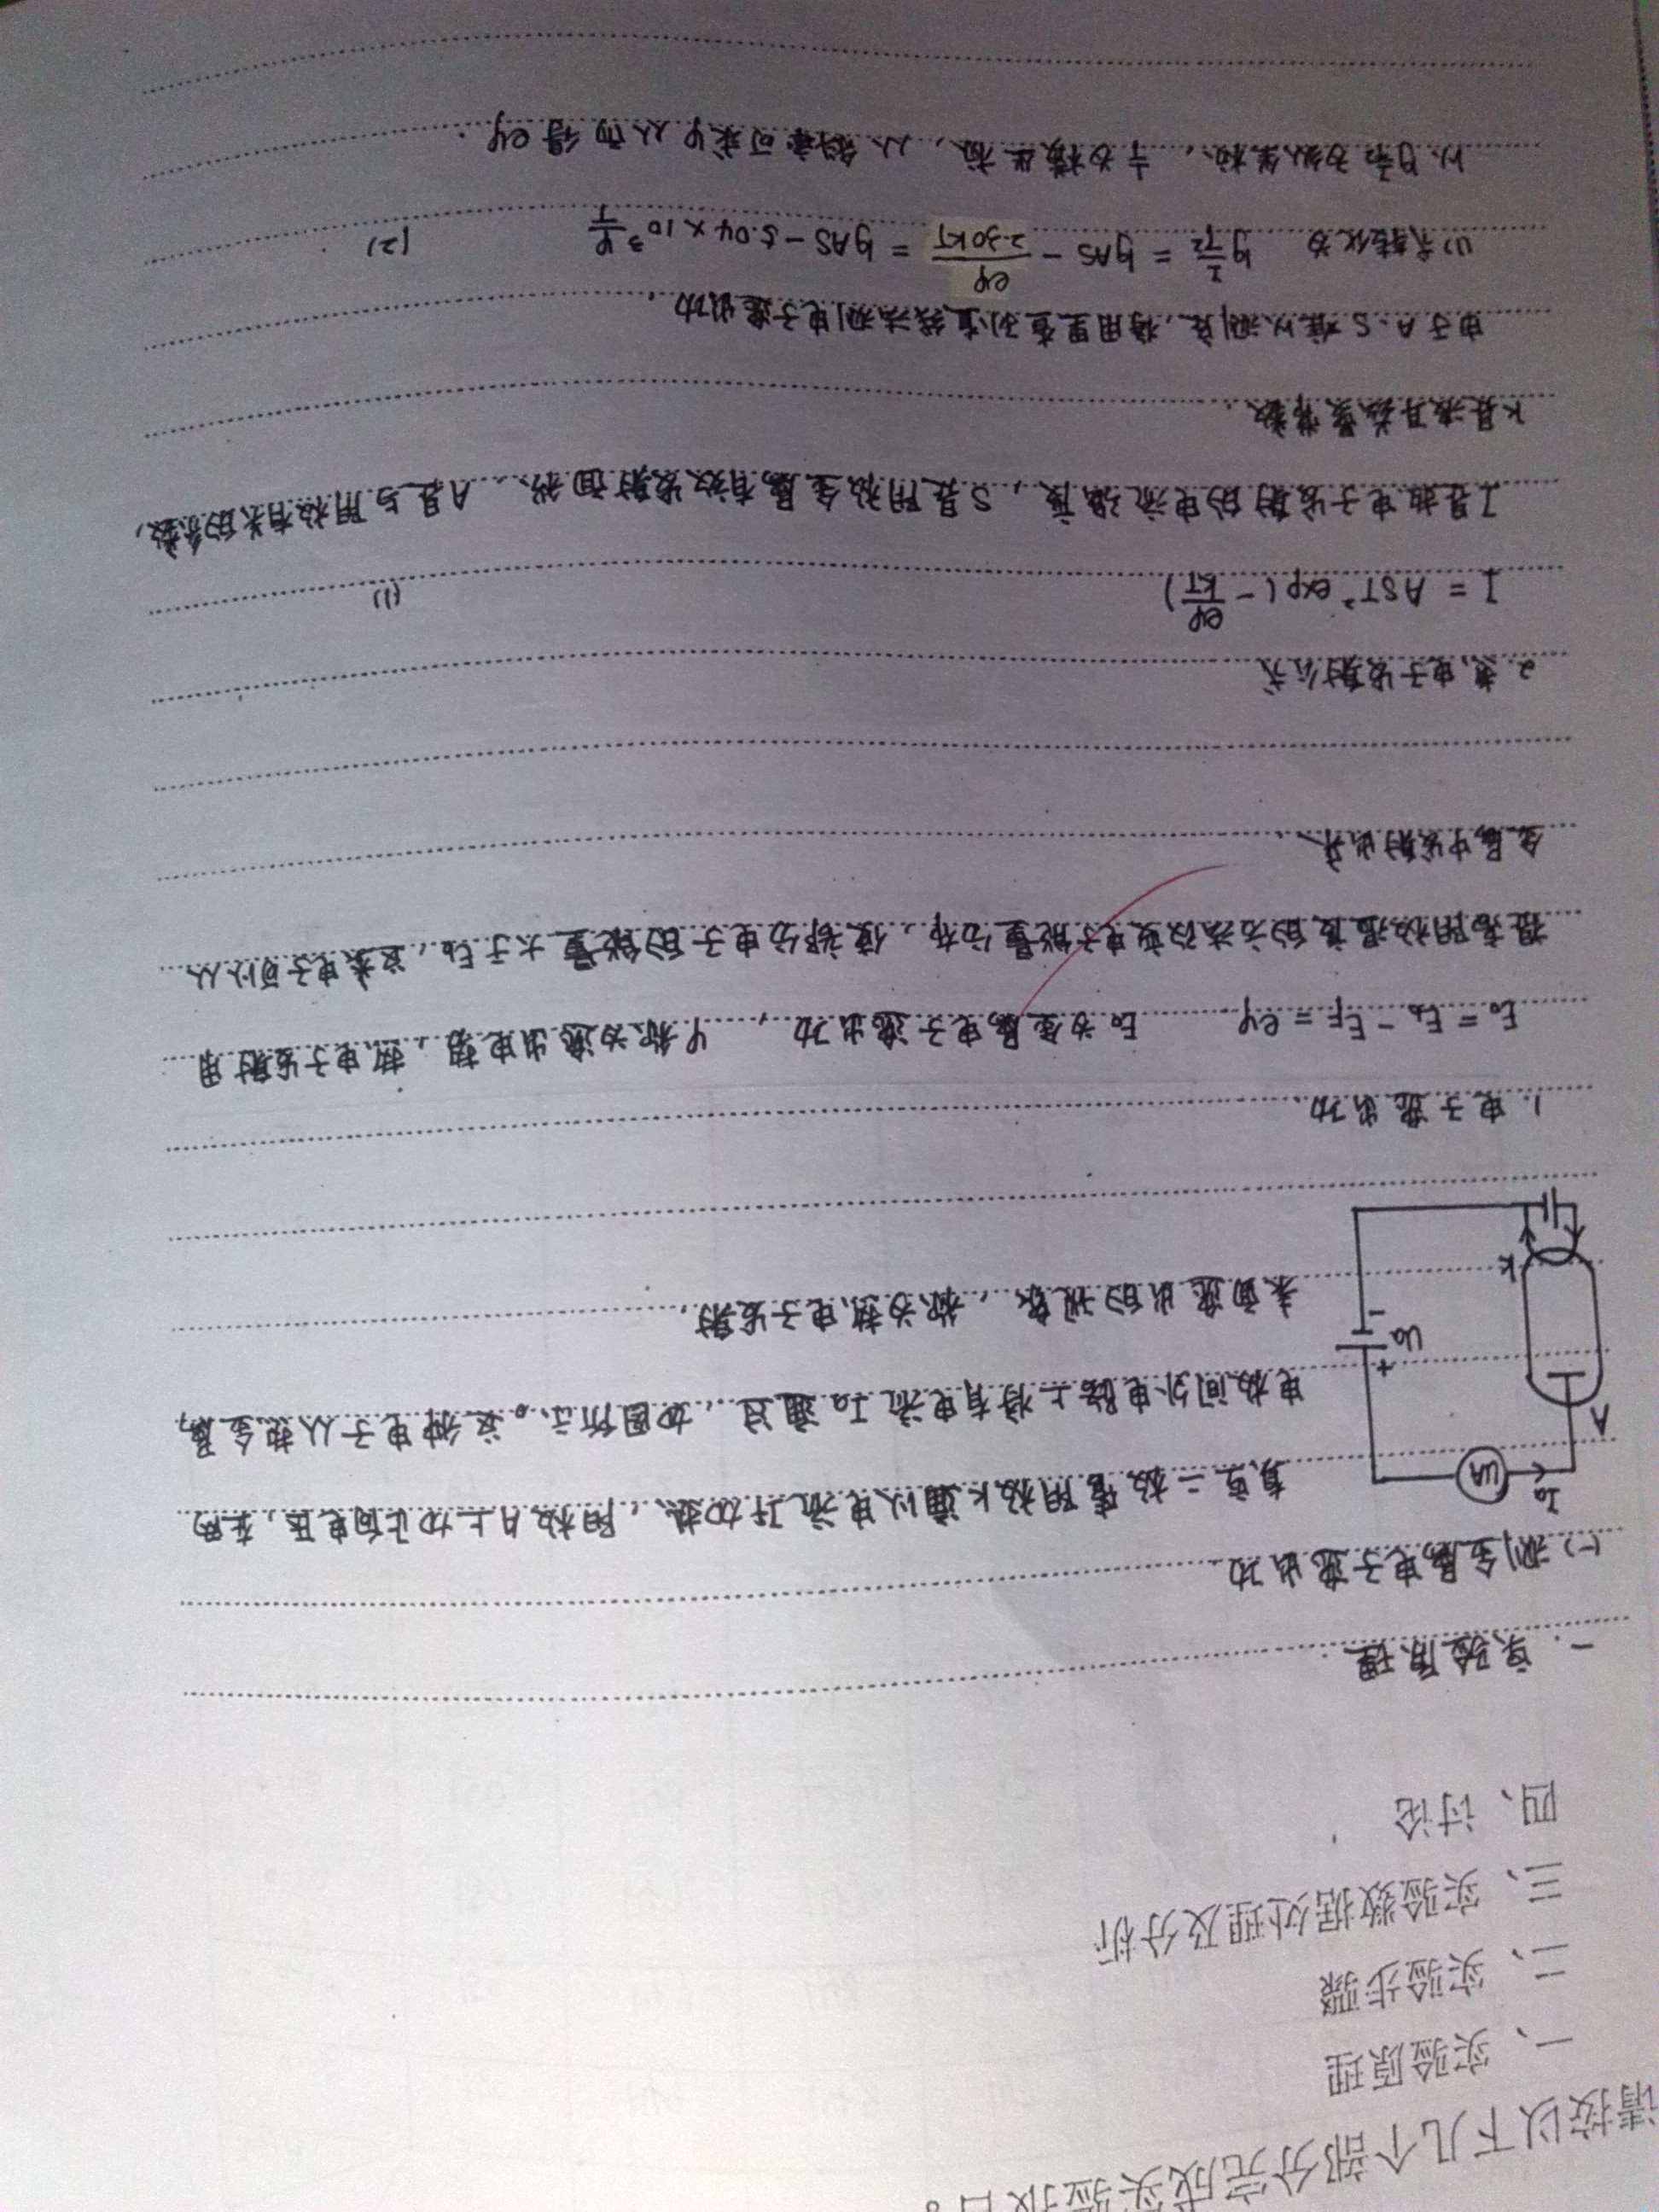 请按以下几个部分完成实验报告。
一、实验原理
二、实验步骤
三、实验数据处理及分析
四、讨论
一.实验原理.
(一)测金属电子逸出功.
真空二极管阴极K通以电流If加热,阳极A上加正向电压,在两
电极间外电路上将有电流Ia通过,如图所示。这种电子从热金属
表面逸出的现象,称为热电子发射.
Ia
uA
A
+
Ua
-
K
1.电子逸出功.
E₀ = E_b - E_F = eφ E₀为金属电子逸出功, φ称为逸出电势,热电子发射用
提高阴极温度的方法改变电子能量分布,使部分电子的能量大于E_b,这末电子可以从
金属中发射出来.
2.热电子发射公式
I = AST² exp(-eφ/kT) (1)
I是热电子发射的电流强度,S是阴极金属有效发射面积,A是与阴极有关的系数,
k是玻耳兹曼常数.
由于A、S难以测定,将用里查孙直线法测电子逸出功.
(1)式转化为 lg I/T² = lgAS - eφ/2.30kT = lgAS - 5.04×10³ φ/T (2)
以lg I/T²为纵坐标,1/T为横坐标,从斜率可求φ从而得eφ.